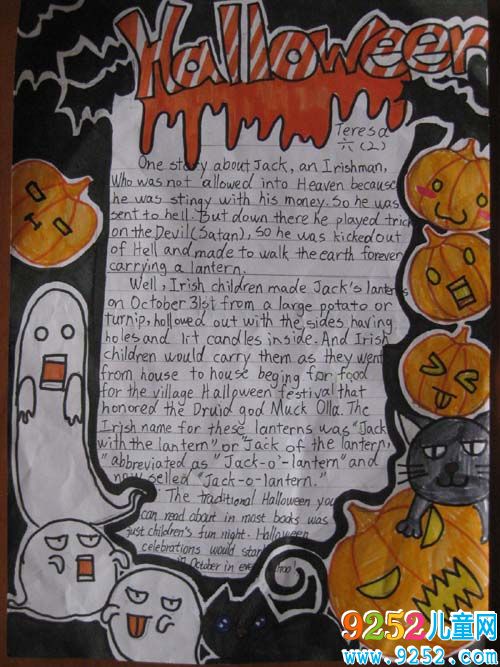 Halloween
Teresa
六(2)
One story about Jack, an Irishman,
Who was not allowed into Heaven because
he was stingy with his money. So he was
sent to hell. But down there he played trick
on the Devil(Satan), so he was kicked out
of Hell and made to walk the earth forever
carrying a lantern.
Well, Irish children made Jack's lanterns
on October 31st from a large potato or
turnip, hollowed out with the sides having
holes and lit candles inside. And Irish
children would carry them as they went
from house to house beging for food
for the village Halloween festival that
honored the Druid god Muck Olla. The
Irish name for these lanterns was "Jack
with the lantern" or "Jack of the lantern,
" abbreviated as "Jack-o'-lantern" and
now selled "Jack-o-lantern."
The traditional Halloween you
can read about in most books was
just children's fun night. Halloween
celebrations would start
October in every
9252儿童网
www.9252.com